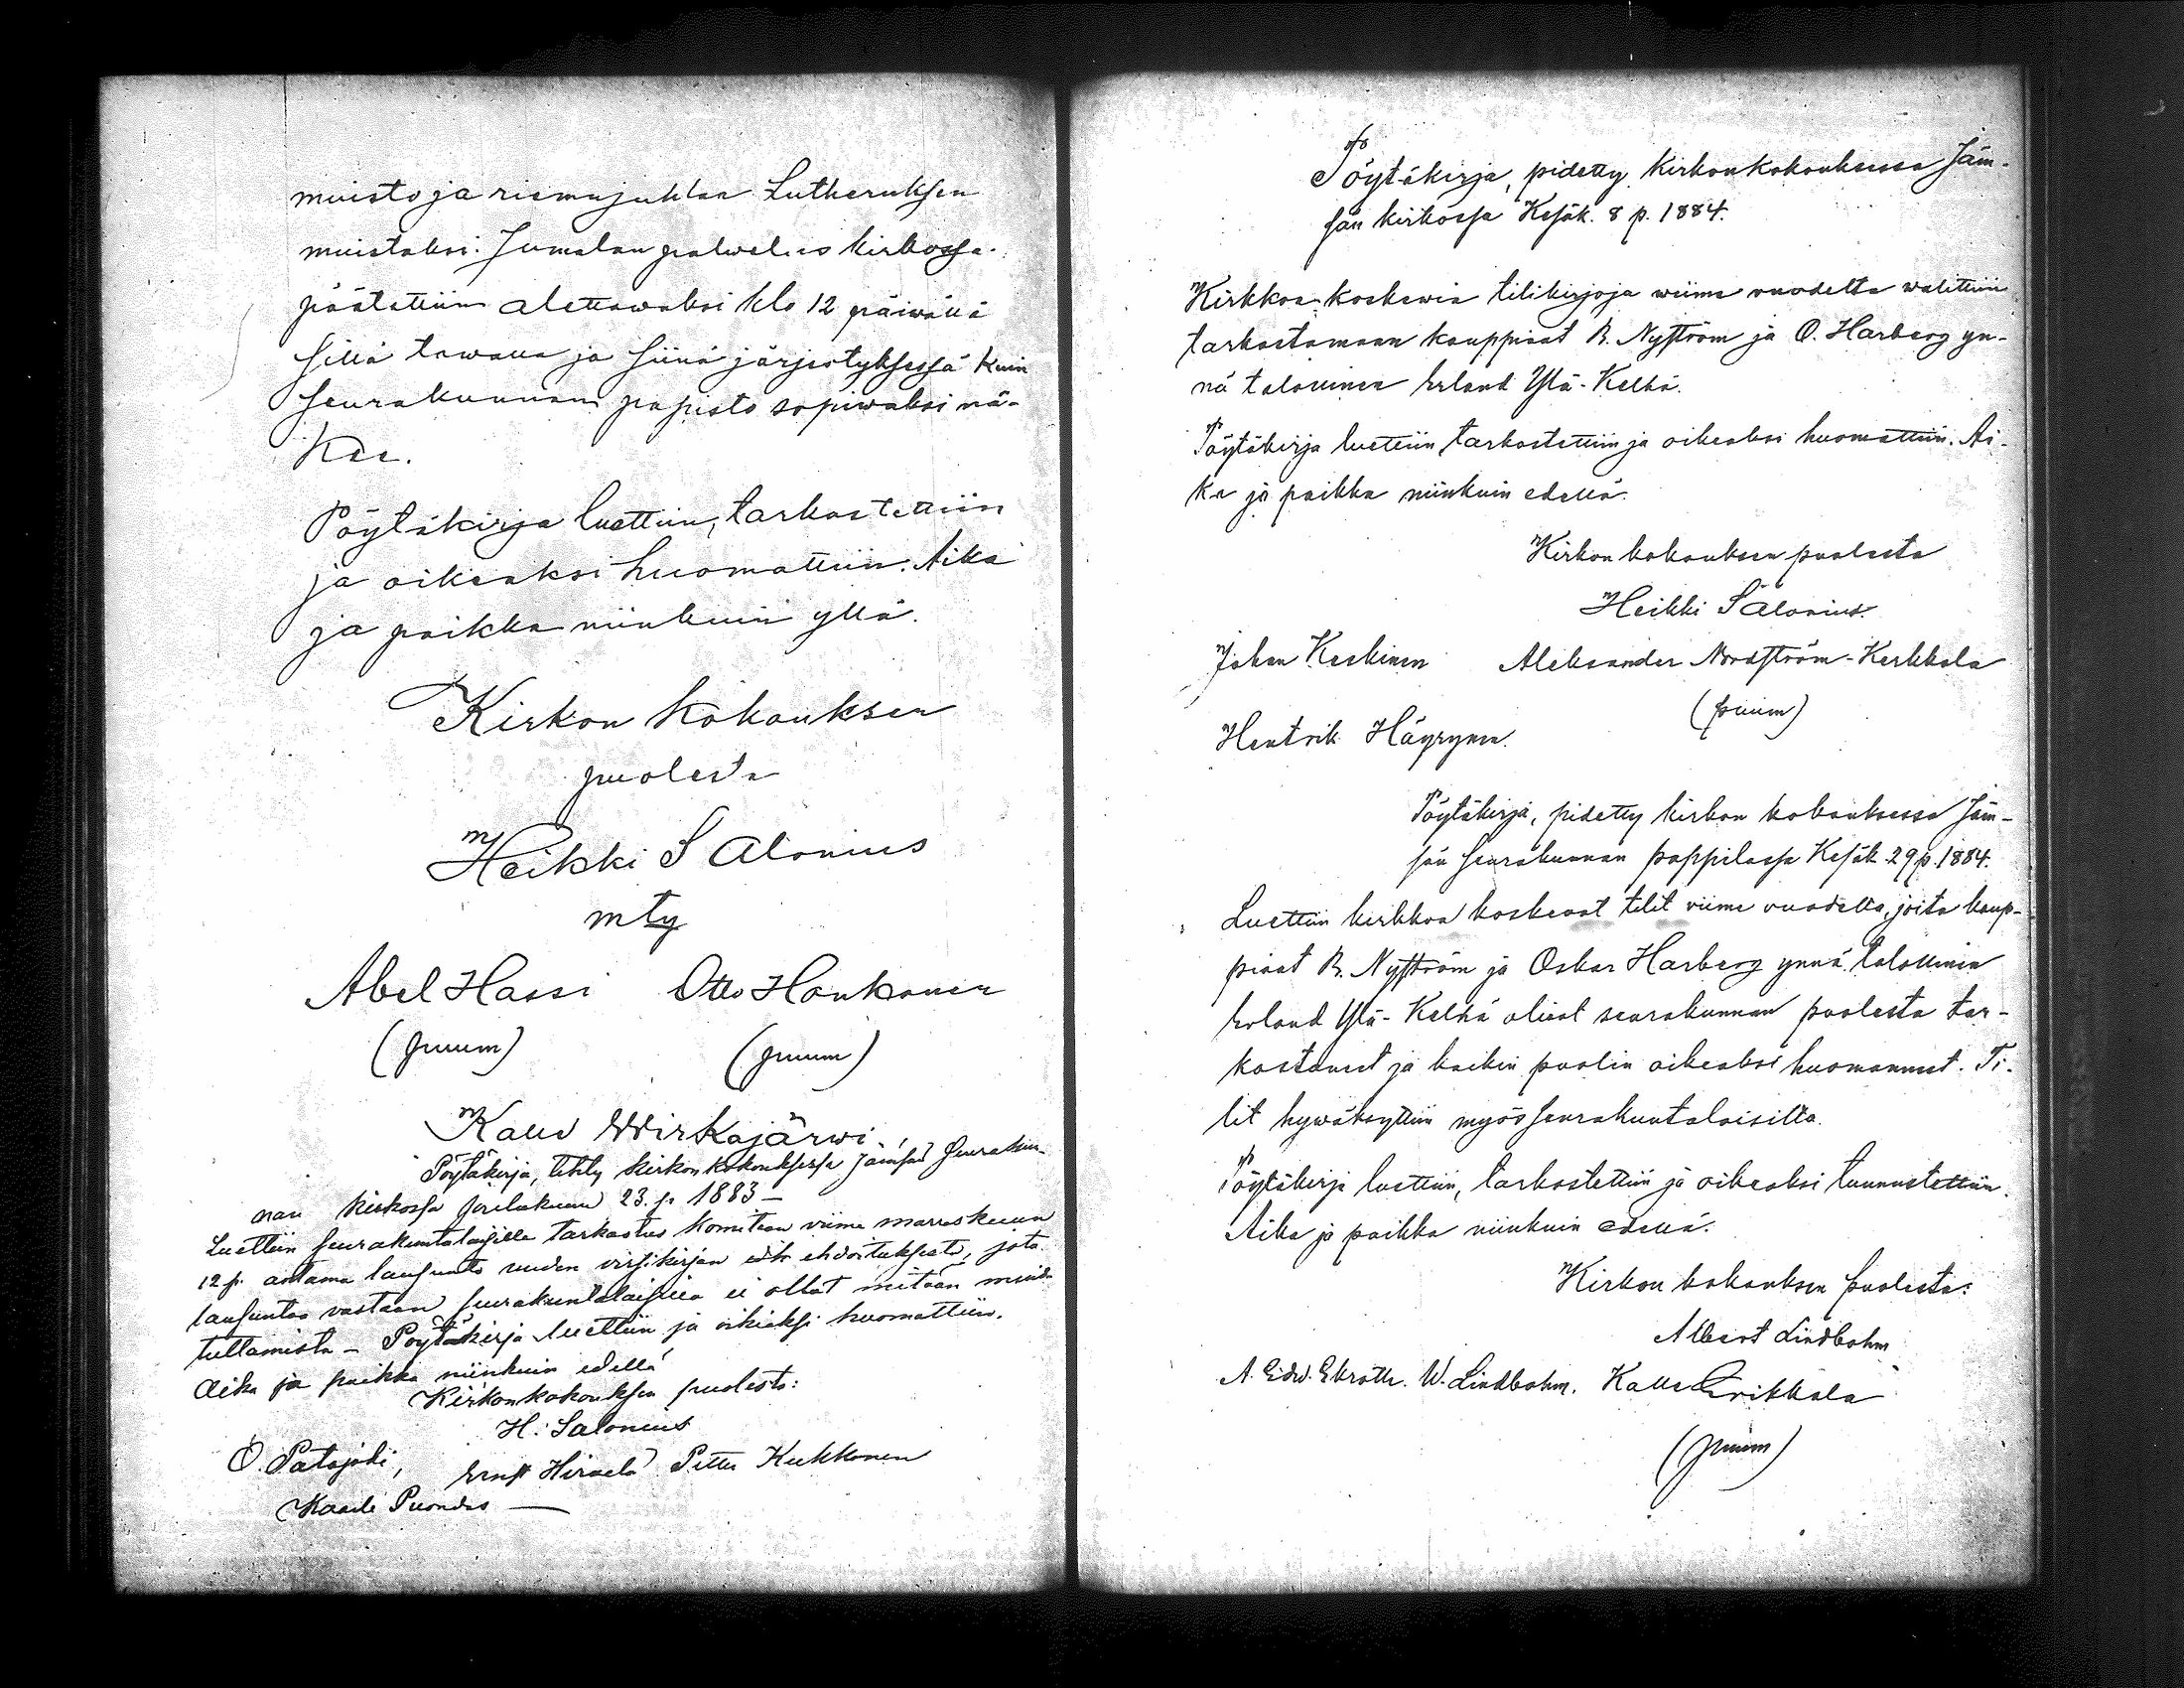 muisto ja riemujuhlaa Lutheruksen
muistoksi. Jumalan palvelus kirkossa
päätettiin alettawaksi klo 12 päiwällä
sillä tawalla ja siinä järjestyksessä kuin
seurakunnan papisto sopiwaksi nä-
kee.
Pöytäkirja luettiin, tarkastettiin
ja oikeaksi huomattiin. Aika
ja paikka niinkuin yllä.
Kirkon kokouksen
puolesta
Heikki Salonius
mty
Abel Hassi Otto Honkanen
(puum) (puum)
Kalle Wirkajärwi
Pöytäkirja, tehty kirkonkokouksessa Jämsän seurakun-
nan kirkossa joulukuun 23. p. 1883 –
Luettiin seurakuntalaisille tarkastus komitean viime marraskuun
12 p. antama lausunto uuden virsikirjan ehdoituksesta, jota
lausuntoa vastaan seurakuntalaisilla ei ollut mitään muis-
tuttamista – Pöytäkirja luettiin ja oikiaksi huomattiin.
Aika ja paikka niinkuin edellä
Kirkonkokouksen puolesta:
H. Salonius
O. Patajoki, Ernst Hirvelä Petter Kukkonen
Kaarle Puondas —
Pöytäkirja, pidetty kirkonkokouksessa Jäm-
sän kirkossa Kesäk. 8 p. 1884.
Kirkkoa koskewia tilikirjoja wiime vuodelta walittiin
tarkastamaan kauppiaat R. Nyström ja O. Harberg yn-
nä talollinen Erland Ylä-Kelhä.
Pöytäkirja luettiin, tarkastettiin ja oikeaksi huomattiin. Ai-
ka ja paikka niinkuin edellä.
Kirkon kokouksen puolesta
Heikki Salonius.
Johan Keskinen Aleksander Nordström-Kerkkola
(puum)
Hentrik Häyrynen.
Pöytäkirja, pidetty kirkon kokouksessa Jäm-
sän seurakunnan pappilassa Kesäk. 29 p. 1884.
Luettiin kirkkoa koskevat tilit viime vuodelta, joita kaup-
piaat R. Nyström ja Oskar Harberg ynnä talollinen
Erland Ylä-Kelhä olivat seurakunnan puolesta tar-
kastaneet ja kaikin puolin oikeaksi huomanneet. Ti-
lit hywäksyttiin myös seurakuntalaisilta.
Pöytäkirja luettiin, tarkastettiin ja oikeaksi tunnustettiin.
Aika ja paikka niinkuin edellä.
Kirkon kokouksen puolesta:
Albert Lindbohm
A. Edw. Ekroth. W. Lindbohm. Kalle Erikkala
(puum)